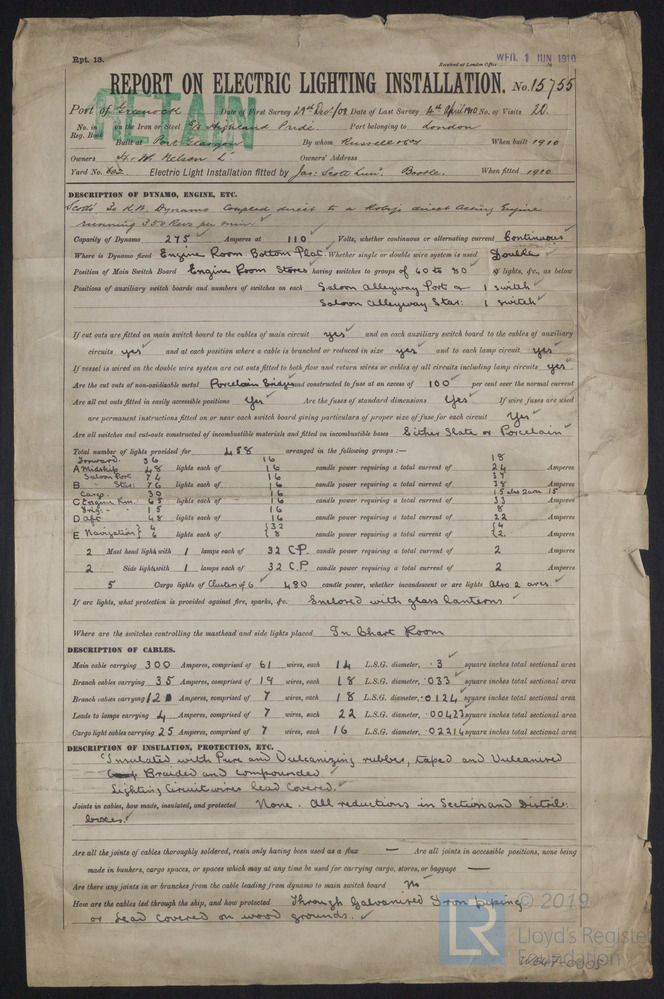 Rpt. 13.
Received at London Office
WED. 1 JUN 1910
REPORT ON ELECTRIC LIGHTING INSTALLATION. No. 15755
RETAIN
Port of Greenock Date of First Survey 21st Dec/09 Date of Last Survey 4th April 1910 No. of Visits 20
No. in Reg. Book on the Iron or Steel S/S Highland Pride Port belonging to London
Built at Port Glasgow By whom Russell & Co When built 1910
Owners H. & W. Nelson Ld Owners' Address
Yard No. Electric Light Installation fitted by Jas: Scott Bootle. When fitted 1910
DESCRIPTION OF DYNAMO, ENGINE, ETC.
Scott's Dynamo Coupled direct to a direct acting Engine
running 350 Revs per min.
Capacity of Dynamo 275 Amperes at 110 Volts, whether continuous or alternating current Continuous
Where is Dynamo fixed Engine Room Bottom Plat. Whether single or double wire system is used Double
Position of Main Switch Board Engine Room Stores having switches to groups of 60 to 80 of lights, &c., as below
Positions of auxiliary switch boards and numbers of switches on each Saloon Alleyway Port 1 switch
Saloon Alleyway Star: 1 switch
If cut outs are fitted on main switch board to the cables of main circuit yes and on each auxiliary switch board to the cables of auxiliary
circuits yes and at each position where a cable is branched or reduced in size yes and to each lamp circuit yes
If vessel is wired on the double wire system are cut outs fitted to both flow and return wires or cables of all circuits including lamp circuits yes
Are the cut outs of non-oxidizable metal Porcelain Bridges and constructed to fuse at an excess of 100 per cent over the normal current
Are all cut outs fitted in easily accessible positions Yes Are the fuses of standard dimensions Yes If wire fuses are used
are permanent instructions fitted on or near each switch board giving particulars of proper size of fuse for each circuit Yes
Are all switches and cut-outs constructed of incombustible materials and fitted on incombustible bases Either Slate or Porcelain
Total number of lights provided for 458 arranged in the following groups :—
Forward. 36 16 18
A Midship 48 lights each of 16 candle power requiring a total current of 24 Amperes
Saloon Port 74 16 37
B " Star. 76 lights each of 16 candle power requiring a total current of 38 Amperes
Cargo 30 16 15 also 2 arcs 15
C Engine Rm. 65 lights each of 16 candle power requiring a total current of 33 Amperes
15 16 8
D Aft 48 lights each of 16 candle power requiring a total current of 22 Amperes
4 32 4
E Navigation 6 lights each of 8 candle power requiring a total current of 2 Amperes
2 Mast head light with 1 lamps each of 32 C.P. candle power requiring a total current of 2 Amperes
2 Side light with 1 lamps each of 32 C.P. candle power requiring a total current of 2 Amperes
5 Cargo lights of Clusters of 6 480 candle power, whether incandescent or arc lights Also 2 arcs.
If arc lights, what protection is provided against fire, sparks, &c. Enclosed with glass lanterns
Where are the switches controlling the masthead and side lights placed In Chart Room
DESCRIPTION OF CABLES.
Main cable carrying 300 Amperes, comprised of 61 wires, each 14 L.S.G. diameter, .3 square inches total sectional area
Branch cables carrying 35 Amperes, comprised of 19 wires, each 18 L.S.G. diameter, .033 square inches total sectional area
Branch cables carrying 12 Amperes, comprised of 7 wires, each 18 L.S.G. diameter, .0124 square inches total sectional area
Leads to lamps carrying 4 Amperes, comprised of 7 wires, each 22 L.S.G. diameter, .00422 square inches total sectional area
Cargo light cables carrying 25 Amperes, comprised of 7 wires, each 16 L.S.G. diameter, .02214 square inches total sectional area
DESCRIPTION OF INSULATION, PROTECTION, ETC.
Insulated with Pure and Vulcanizing rubber, taped and Vulcanised
Braided and compounded
Lighting Circuit wires lead Covered.
Joints in cables, how made, insulated, and protected None. All reductions in Section and Distrib:
boxes.
Are all the joints of cables thoroughly soldered, resin only having been used as a flux — Are all joints in accessible positions, none being
made in bunkers, cargo spaces, or spaces which may at any time be used for carrying cargo, stores, or baggage —
Are there any joints in or branches from the cable leading from dynamo to main switch board No
How are the cables led through the ship, and how protected Through Galvanised Iron piping
or Lead Covered on wood grounds.
LR
© 2019
Lloyd's Register
Foundation
W647-0005